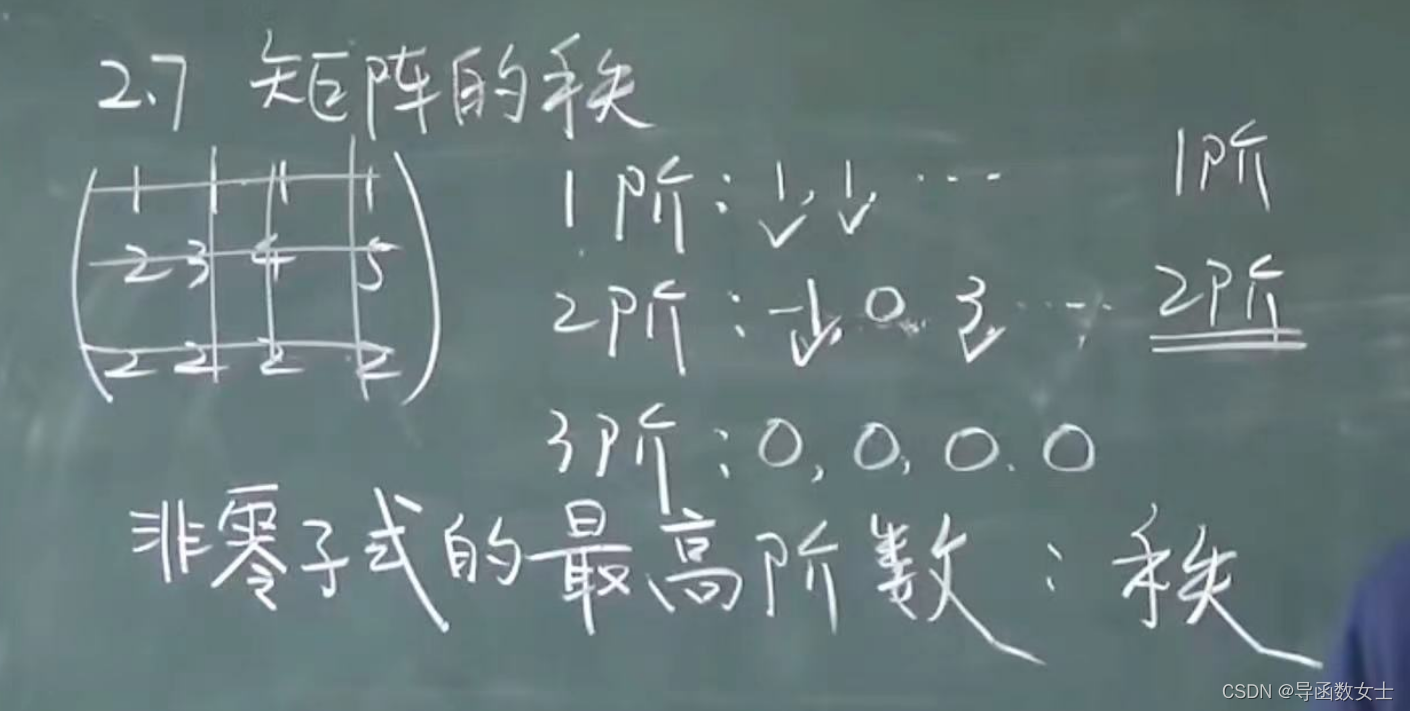 2.7 矩阵的秩
1 1 1 1
2 3 4 5
2 2 2 2
1阶：1, 1, … 1阶
2阶：-1, 0, 3 … 2阶
3阶：0, 0, 0, 0
非零子式的最高阶数：秩
CSDN @导函数女士